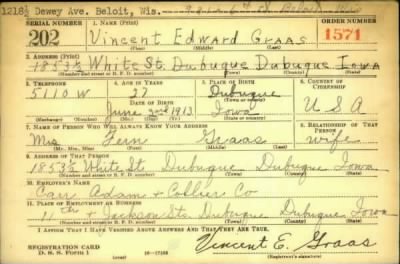 1216½ Dewey Ave. Beloit, Wis.
SERIAL NUMBER 1. NAME (Print) ORDER NUMBER
202 Vincent Edward Graas 1571
(First) (Middle) (Last)
2. ADDRESS (Print)
1853½ White St. Dubuque Dubuque Iowa
(Number and street or R. F. D. number) (Town) (County) (State)
3. TELEPHONE 4. AGE IN YEARS 5. PLACE OF BIRTH 6. COUNTRY OF CITIZENSHIP
5110 W 27 Dubuque
DATE OF BIRTH (Town or county)
June 2nd 1913 Iowa U S A
(Exchange) (Number) (Mo.) (Day) (Yr.) (State or country)
7. NAME OF PERSON WHO WILL ALWAYS KNOW YOUR ADDRESS 8. RELATIONSHIP OF THAT PERSON
Mrs Fern Graas wife
(Mr., Mrs., Miss) (First) (Middle) (Last)
9. ADDRESS OF THAT PERSON
1853½ White St Dubuque Dubuque Iowa
(Number and street or R. F. D. number) (Town) (County) (State)
10. EMPLOYER'S NAME
Carr Adam + Collier Co
11. PLACE OF EMPLOYMENT OR BUSINESS
11th + Jackson Sts. Dubuque Dubuque Iowa
(Number and street or R. F. D. number) (Town) (County) (State)
I AFFIRM THAT I HAVE VERIFIED ABOVE ANSWERS AND THAT THEY ARE TRUE.
REGISTRATION CARD
D. S. S. Form 1 16—17105 Vincent E. Graas
(Registrant's signature)